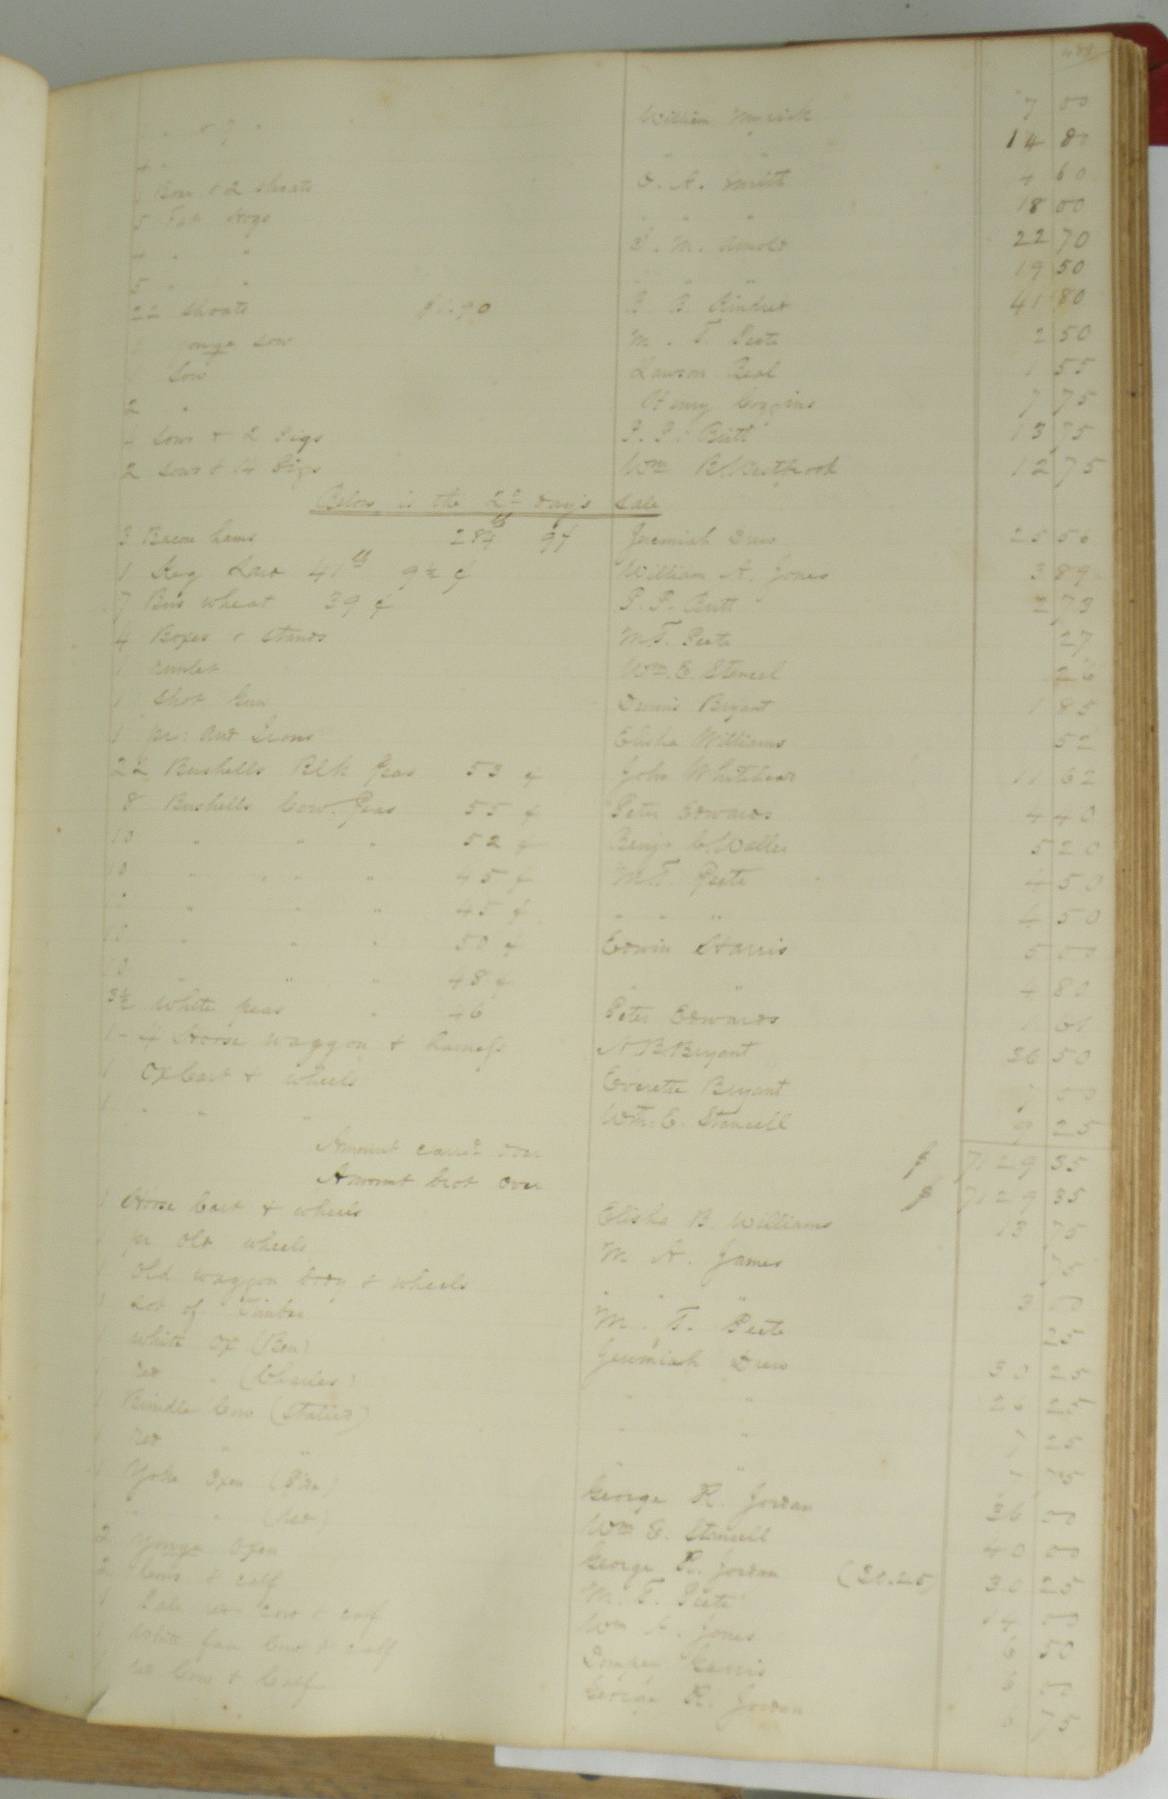 " " 7 " William Myrick 7 00
14 80
1 Boar & 2 Shoats D. A. Smith 4 60
5 Fat Hogs " " " 18 00
4 " " J. M. Arnold 22 70
5 " " " " " 19 50
22 Shoats $1.90 41 80
1 Sow M. T. Peete 2 50
1 Sow Lawson Beal 1 55
2 " Henry Goggins 7 75
4 Sows & 2 Pigs P. P. Britt 13 75
2 Sows & 14 Pigs Wm B. Westbrook 12 75
Below is the 2d day's Sale
3 Bacon hams 284 lb 9¢ Jeremiah Drew 25 56
1 Keg Lard 41 lb 9½ ¢ William A. Jones 3 89
7 Bus wheat 39 ¢ P. P. Britt 2 73
4 Boxes & Stands M. T. Peete 27
1 runlet Wm. E. Stancell 26
1 Shot Gun Dennis Bryant 1 85
1 pr: And Irons Elisha Williams 52
22 Bushells Blk Peas 53 ¢ John Whitehead 11 62
8 Bushells Cow Peas 55 ¢ Peter Edwards 4 40
10 " " " 52 ¢ Benj. C. Waller 5 20
10 " " " " 45 ¢ M. T. Peete 4 50
" " " " 45 ¢ " " " 4 50
10 " " " 50 ¢ Edwin Harris 5 00
10 " " " 48 ¢ " " 4 80
3½ White peas " 46 Peter Edwards 1 61
1 - 4 Horse waggon & harness N B Bryant 36 50
1 Ox Cart & wheels Everette Bryant 50
1 " " " Wm. E. Stancell 9 25
Amount carrd over $ 7129 35
Amount brot over $ 7129 35
1 Horse Cart & wheels Elisha B. Williams 13 75
1 pr Old wheels M. A. James 15
1 Old waggon body & wheels " " " 3 00
1 Lot of Timber M. T. Peete 25
1 White Ox (Ben) Jeremiah Drew 30 25
1 red " (Charles) " " 26 25
1 Brindle Cow 25
1 red " " " "
1 Yoke Oxen George R. Jordan 36 00
" " (Red) Wm E. Stancell 40 00
2 Younge Oxen George R. Jordan (20.25) 30 25
2 Cows & calf M. T. Peete 14 00
1 Pale red cow & calf Wm A. Jones 6 50
1 White face Cow & calf Harris 00
1 red Cow & Calf George R. Jordan